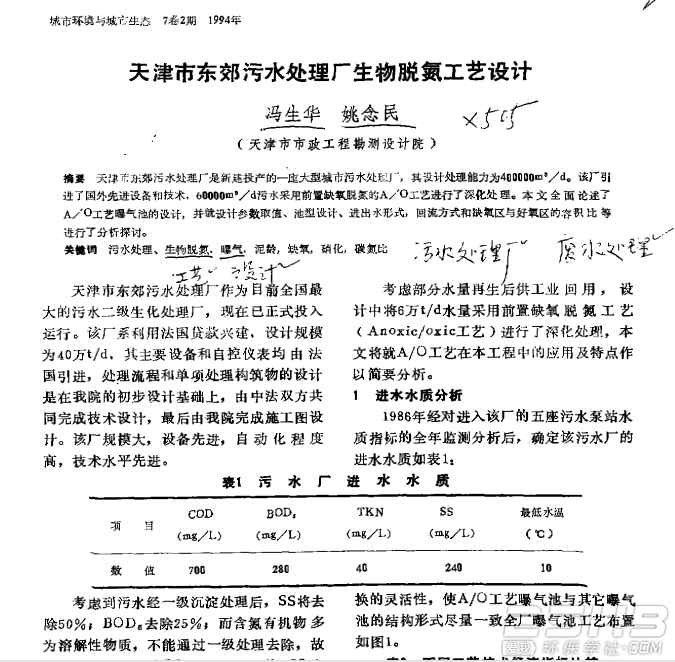 城市环境与城市生态 7卷2期 1994年
天津市东郊污水处理厂生物脱氮工艺设计
冯生华 姚念民
×505
(天津市市政工程勘测设计院)
摘要 天津市东郊污水处理厂是新建投产的一座大型城市污水处理厂,其设计处理能力为400000m³/d。该厂引
进了国外先进设备和技术,60000m³/d污水采用前置缺氧脱氮的A/O工艺进行了深化处理。本文全面论述了
A/O工艺曝气池的设计,并就设计参数取值、池型设计、进出水形式,回流方式和缺氧区与好氧区的容积比等
进行了分析探讨。
关键词 污水处理、生物脱氮、曝气,泥龄,缺氧,硝化,碳氮比
污水处理厂 废水处理
工艺 设计
天津市东郊污水处理厂作为目前全国最
大的污水二级生化处理厂,现在已正式投入
运行。该厂系利用法国贷款兴建,设计规模
为40万t/d,其主要设备和自控仪表均由法
国引进,处理流程和单项处理构筑物的设计
是在我院的初步设计基础上,由中法双方共
同完成技术设计,最后由我院完成施工图设
计。该厂规模大,设备先进,自动化程度
高,技术水平先进。
考虑部分水量再生后供工业回用,设
计中将6万t/d水量采用前置缺氧脱氮工艺
(Anoxic/oxic工艺)进行了深化处理,本
文将就A/O工艺在本工程中的应用及特点作
以简要分析。
1 进水水质分析
1986年经对进入该厂的五座污水泵站水
质指标的全年监测分析后,确定该污水厂的
进水水质如表1:
表1 污水厂进水水质
项 目 COD (mg/L) BOD₅ (mg/L) TKN (mg/L) SS (mg/L) 最低水温 (℃)
数 值 700 280 40 240 10
考虑到污水经一级沉淀处理后,SS将去
除50%;BOD₅去除25%;而含氮有机物多
为溶解性物质,不能通过一级处理去除,故
换的灵活性,使A/O工艺曝气池与其它曝气
池的结构形式尽量一致全厂曝气池工艺布置
如图1。
爱 环保学社.com